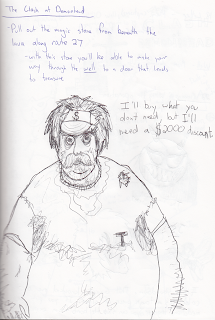 The Clash at Demonhead
-Pull out the magic stone from beneath the
lava along route 27
-with this stone you'll be able to make your
way through the well to a door that leads
to treasure.
I'll buy what you
don't need, but I'll
need a $2000 discount.
$
T